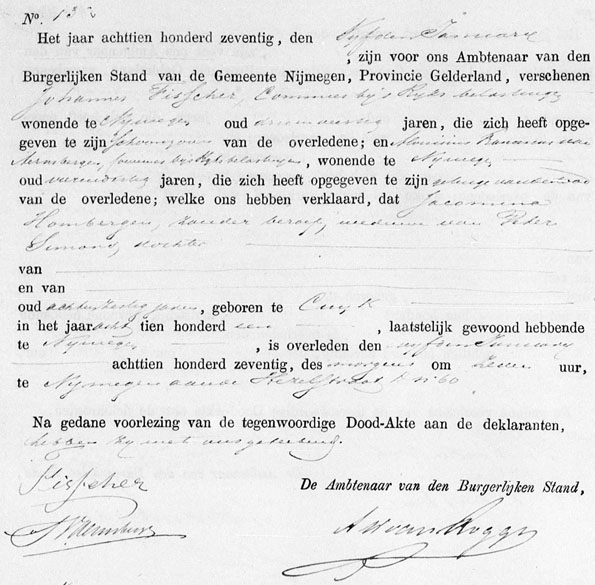 No. 13
Het jaar achttien honderd zeventig, den vyfden January
, zijn voor ons Ambtenaar van den
Burgerlijken Stand van de Gemeente Nijmegen, Provincie Gelderland, verschenen
Johannes Fisscher, Commies bij 's Ryks belastingen
wonende te Nymegen oud jaren, die zich heeft opge-
geven te zijn Schoonzoon van de overledene; en
Commies bij 's Ryks belastingen, wonende te Nymegen
oud jaren, die zich heeft opgegeven te zijn
van de overledene; welke ons hebben verklaard, dat Jacomina
Hombergen, zonder beroep, weduwe van Peter
Simons, dochter
van
en van
oud achtenzestig jaren, geboren te Cuyk
in het jaar acht tien honderd een , laatstelijk gewoond hebbende
te Nymegen , is overleden den vyfden January
achttien honderd zeventig, des morgens om zeven uur,
te Nymegen aan de Hezelstraat n 60
Na gedane voorlezing van de tegenwoordige Dood-Akte aan de deklaranten,
hebben zy met ons geteekend.
Fisscher
De Ambtenaar van den Burgerlijken Stand,